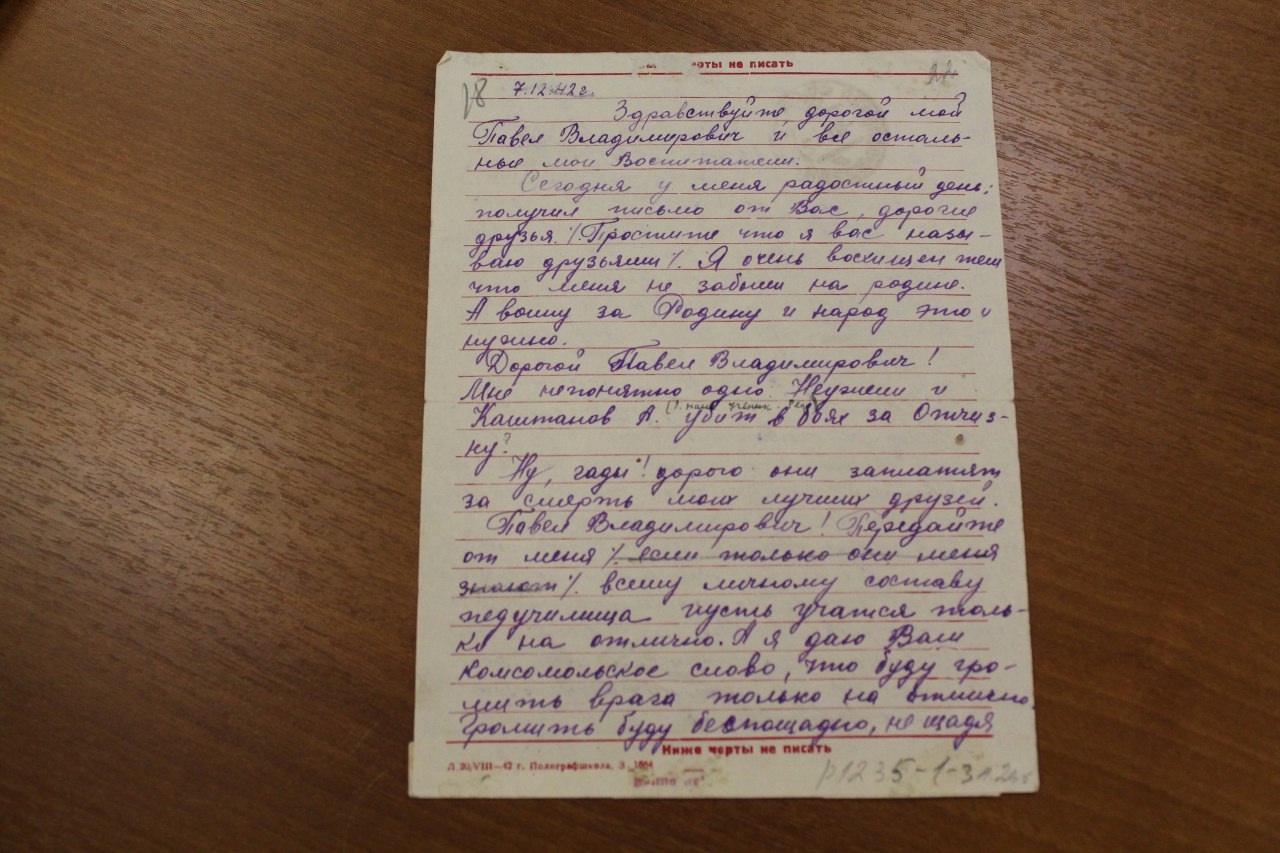 черты не писать
28
7.12.42 г.
Здравствуйте, дорогой мой
Павел Владимирович и все осталь-
ные мои Воспитатели.
Сегодня у меня радостный день:
получил письмо от Вас, дорогие
друзья. /.Простите что я вас назы-
ваю друзьями/. Я очень восхищен тем
что меня не забыли на родине.
А воину за Родину и народ это и
нужно.
Дорогой Павел Владимирович!
Мне непонятно одно. Неужели и
(б. наш ученик.
Каштанов А. убит в боях за Отчиз-
ну?
Ну, гады! дорого они заплатят
за смерть моих лучших друзей.
Павел Владимирович! Передайте
от меня /. если только они меня
знают/. всему личному составу
педучилища пусть учатся толь-
ко на отлично. А я даю Вам
комсомольское слово, что буду гро-
мить врага только на отлично.
Громить буду беспощадно, не щадя
Ниже черты не писать
Л 20/VIII—42 г. Полиграфшкола. З. 1664
р1235-1-3